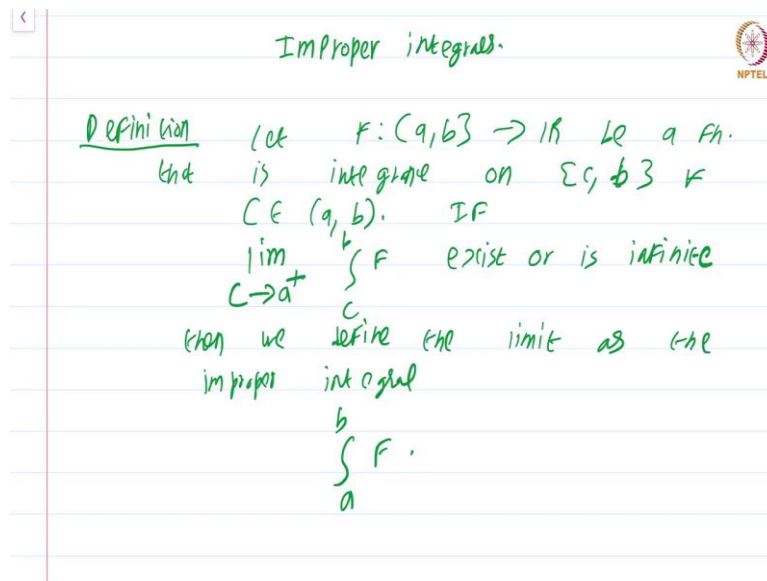 Improper integrals.
NPTEL
Definition Let F: (a,b] → IR be a Fn.
that is integrable on [c, b] ∀
C ∈ (a, b). IF
lim ∫ F exist or is infinite
C→a⁺ c b
then we define the limit as the
improper integral
b
∫ F .
a